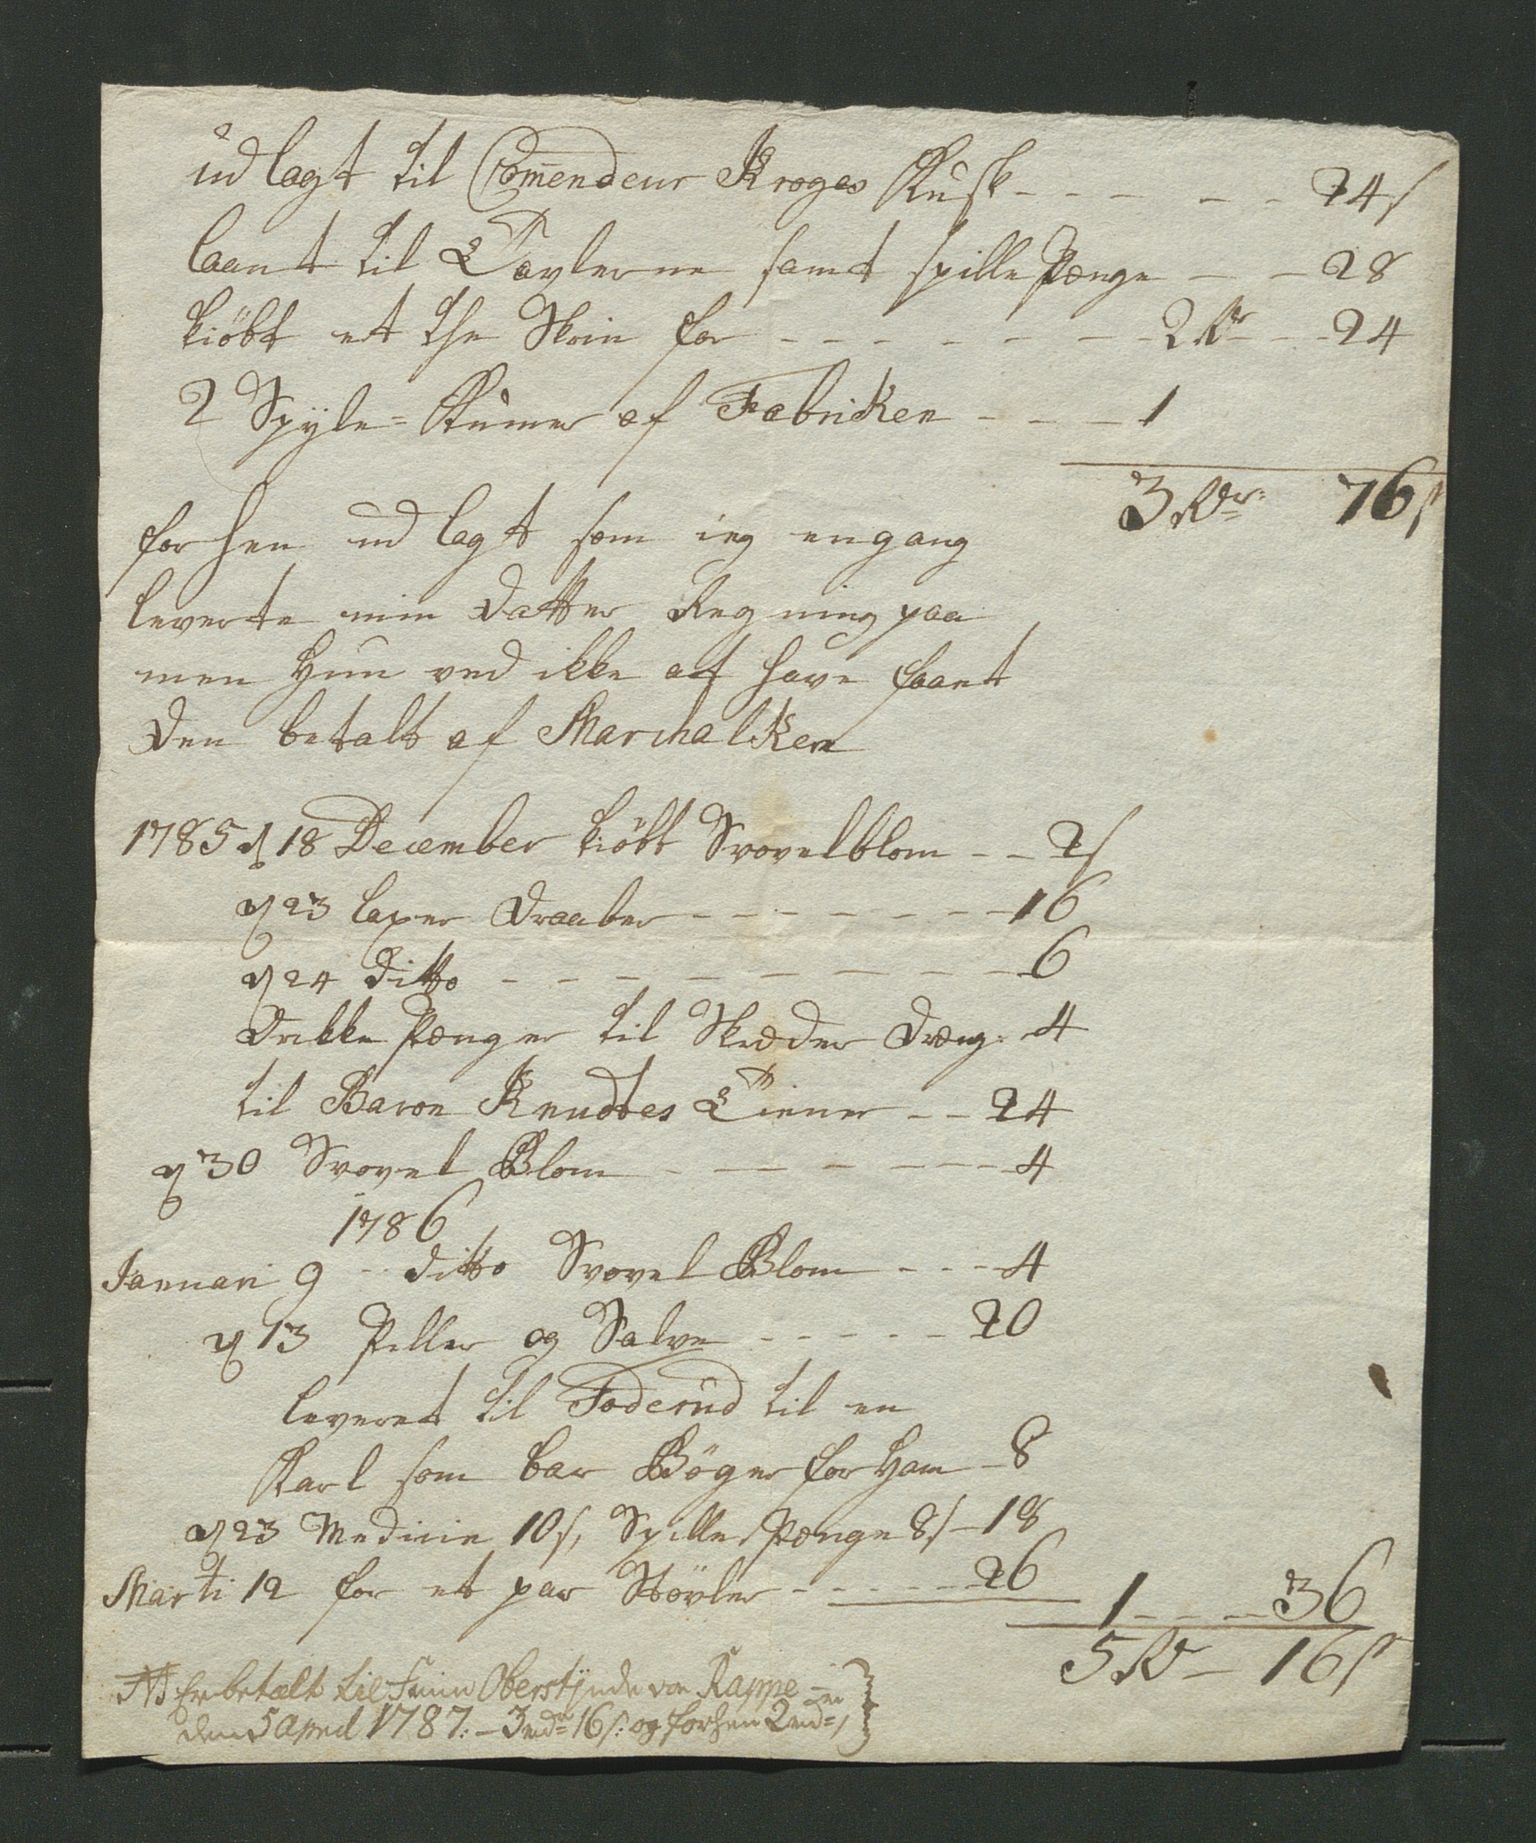 udlagt til Com̅endeur Kroges Kusk - - - - - 24 s
laant til Tavlerne samt spille Penge - - 28
kiöbt et The Skrin for - - - - - - - 2 Rdr - - 24
2 Spÿle=Kumer af Fabriken - - - 1
3 Rdr: 76 s
forhen udlagt som ieg engang
leverte min Datter Regning paa
men Hun ved ikke at have faaet
Den betalt af Marchalken
1785 d 18 December kiöbt Svovelblom - - 2 s
d 23 laxer Draaber - - - - - - - 16
d 24 Ditto - - - - - - - - 6
Drikke Penger til Skræder Dreng: 4
til Baron Knudtes Tiener - - 24
d 30 Svovel Blom - - - - - - - 4
1786
Januari 9 - - ditto Svovel Blom - - - 4
d 13 Piller og Salve - - - - - 20
leveret til Foderud til en
Karl som bar Böger for Ham - 8
d 23 Medicin 10 s, Spille Penge 8 s - 18
Marti 12 for et par Stövler - - - - - 26
1 - - - 36
5 Rdr - 16 s
NB Er betalt til Fruin Oberstÿnde von Rappe
den 5 April 1787: - 3 rdr 16 s: og forhen 2 rdr